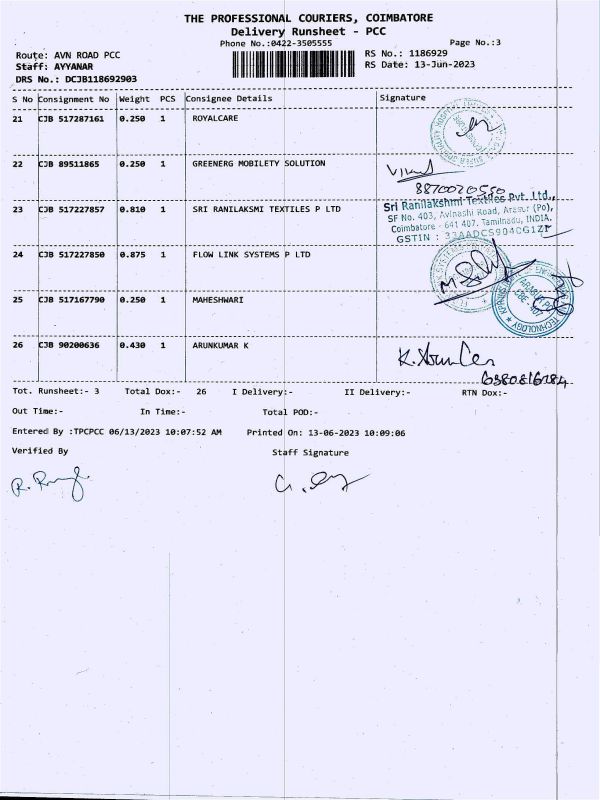 THE PROFESSIONAL COURIERS, COIMBATORE
Delivery Runsheet - PCC
Phone No.:0422-3505555
Page No.:3
Route: AVN ROAD PCC
RS No.: 1186929
Staff: AYYANAR
RS Date: 13-Jun-2023
DRS No.: DCJB118692903
S No Consignment No Weight PCS Consignee Details Signature
21 CJB 517287161 0.250 1 ROYALCARE
22 CJB 89511865 0.250 1 GREENERG MOBILETY SOLUTION
8870020550
23 CJB 517227857 0.810 1 SRI RANILAKSMI TEXTILES P LTD
Sri Ranilakshmi Textiles Pvt. Ltd.,
SF No. 403, Avinashi Road, Arasur (Po),
Coimbatore - 641 407. Tamilnadu, INDIA.
GSTIN : 33AADCS904CG1ZF
24 CJB 517227850 0.875 1 FLOW LINK SYSTEMS P LTD
25 CJB 517167790 0.250 1 MAHESHWARI
TECHNOLOGY
26 CJB 90200636 0.430 1 ARUNKUMAR K
Tot. Runsheet:- 3 Total Dox:- 26 I Delivery:- II Delivery:- RTN Dox:-
Out Time:- In Time:- Total POD:-
Entered By :TPCPCC 06/13/2023 10:07:52 AM Printed On: 13-06-2023 10:09:06
Verified By Staff Signature